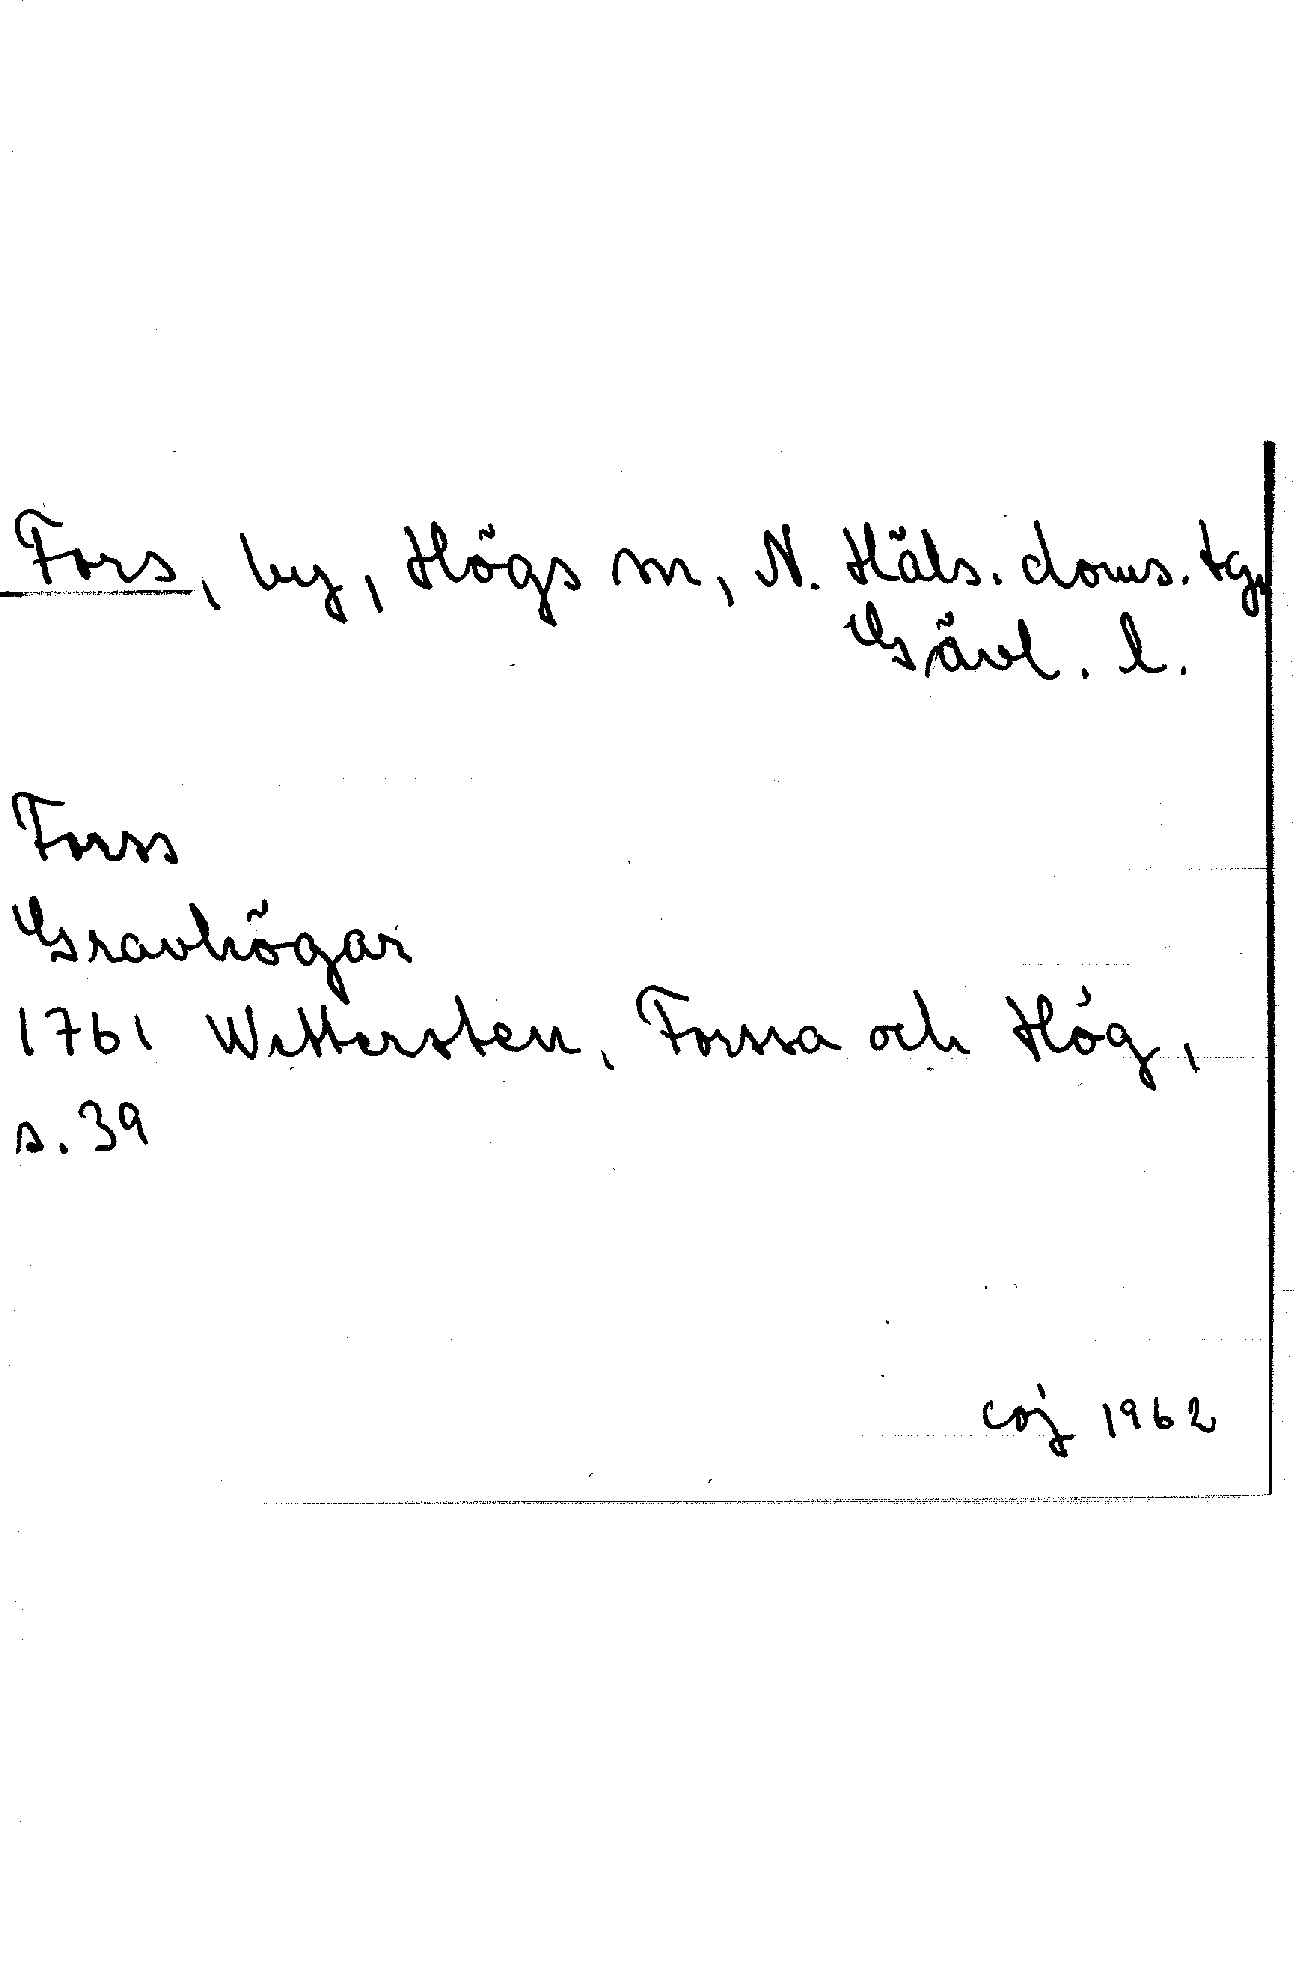 Fors, by, Högs sn, N. Häls. doms. tg,
Gävl. l.
Forss
Gravhögar
1761 Wettersten, Forssa och Hög,
s. 39
coj 1962